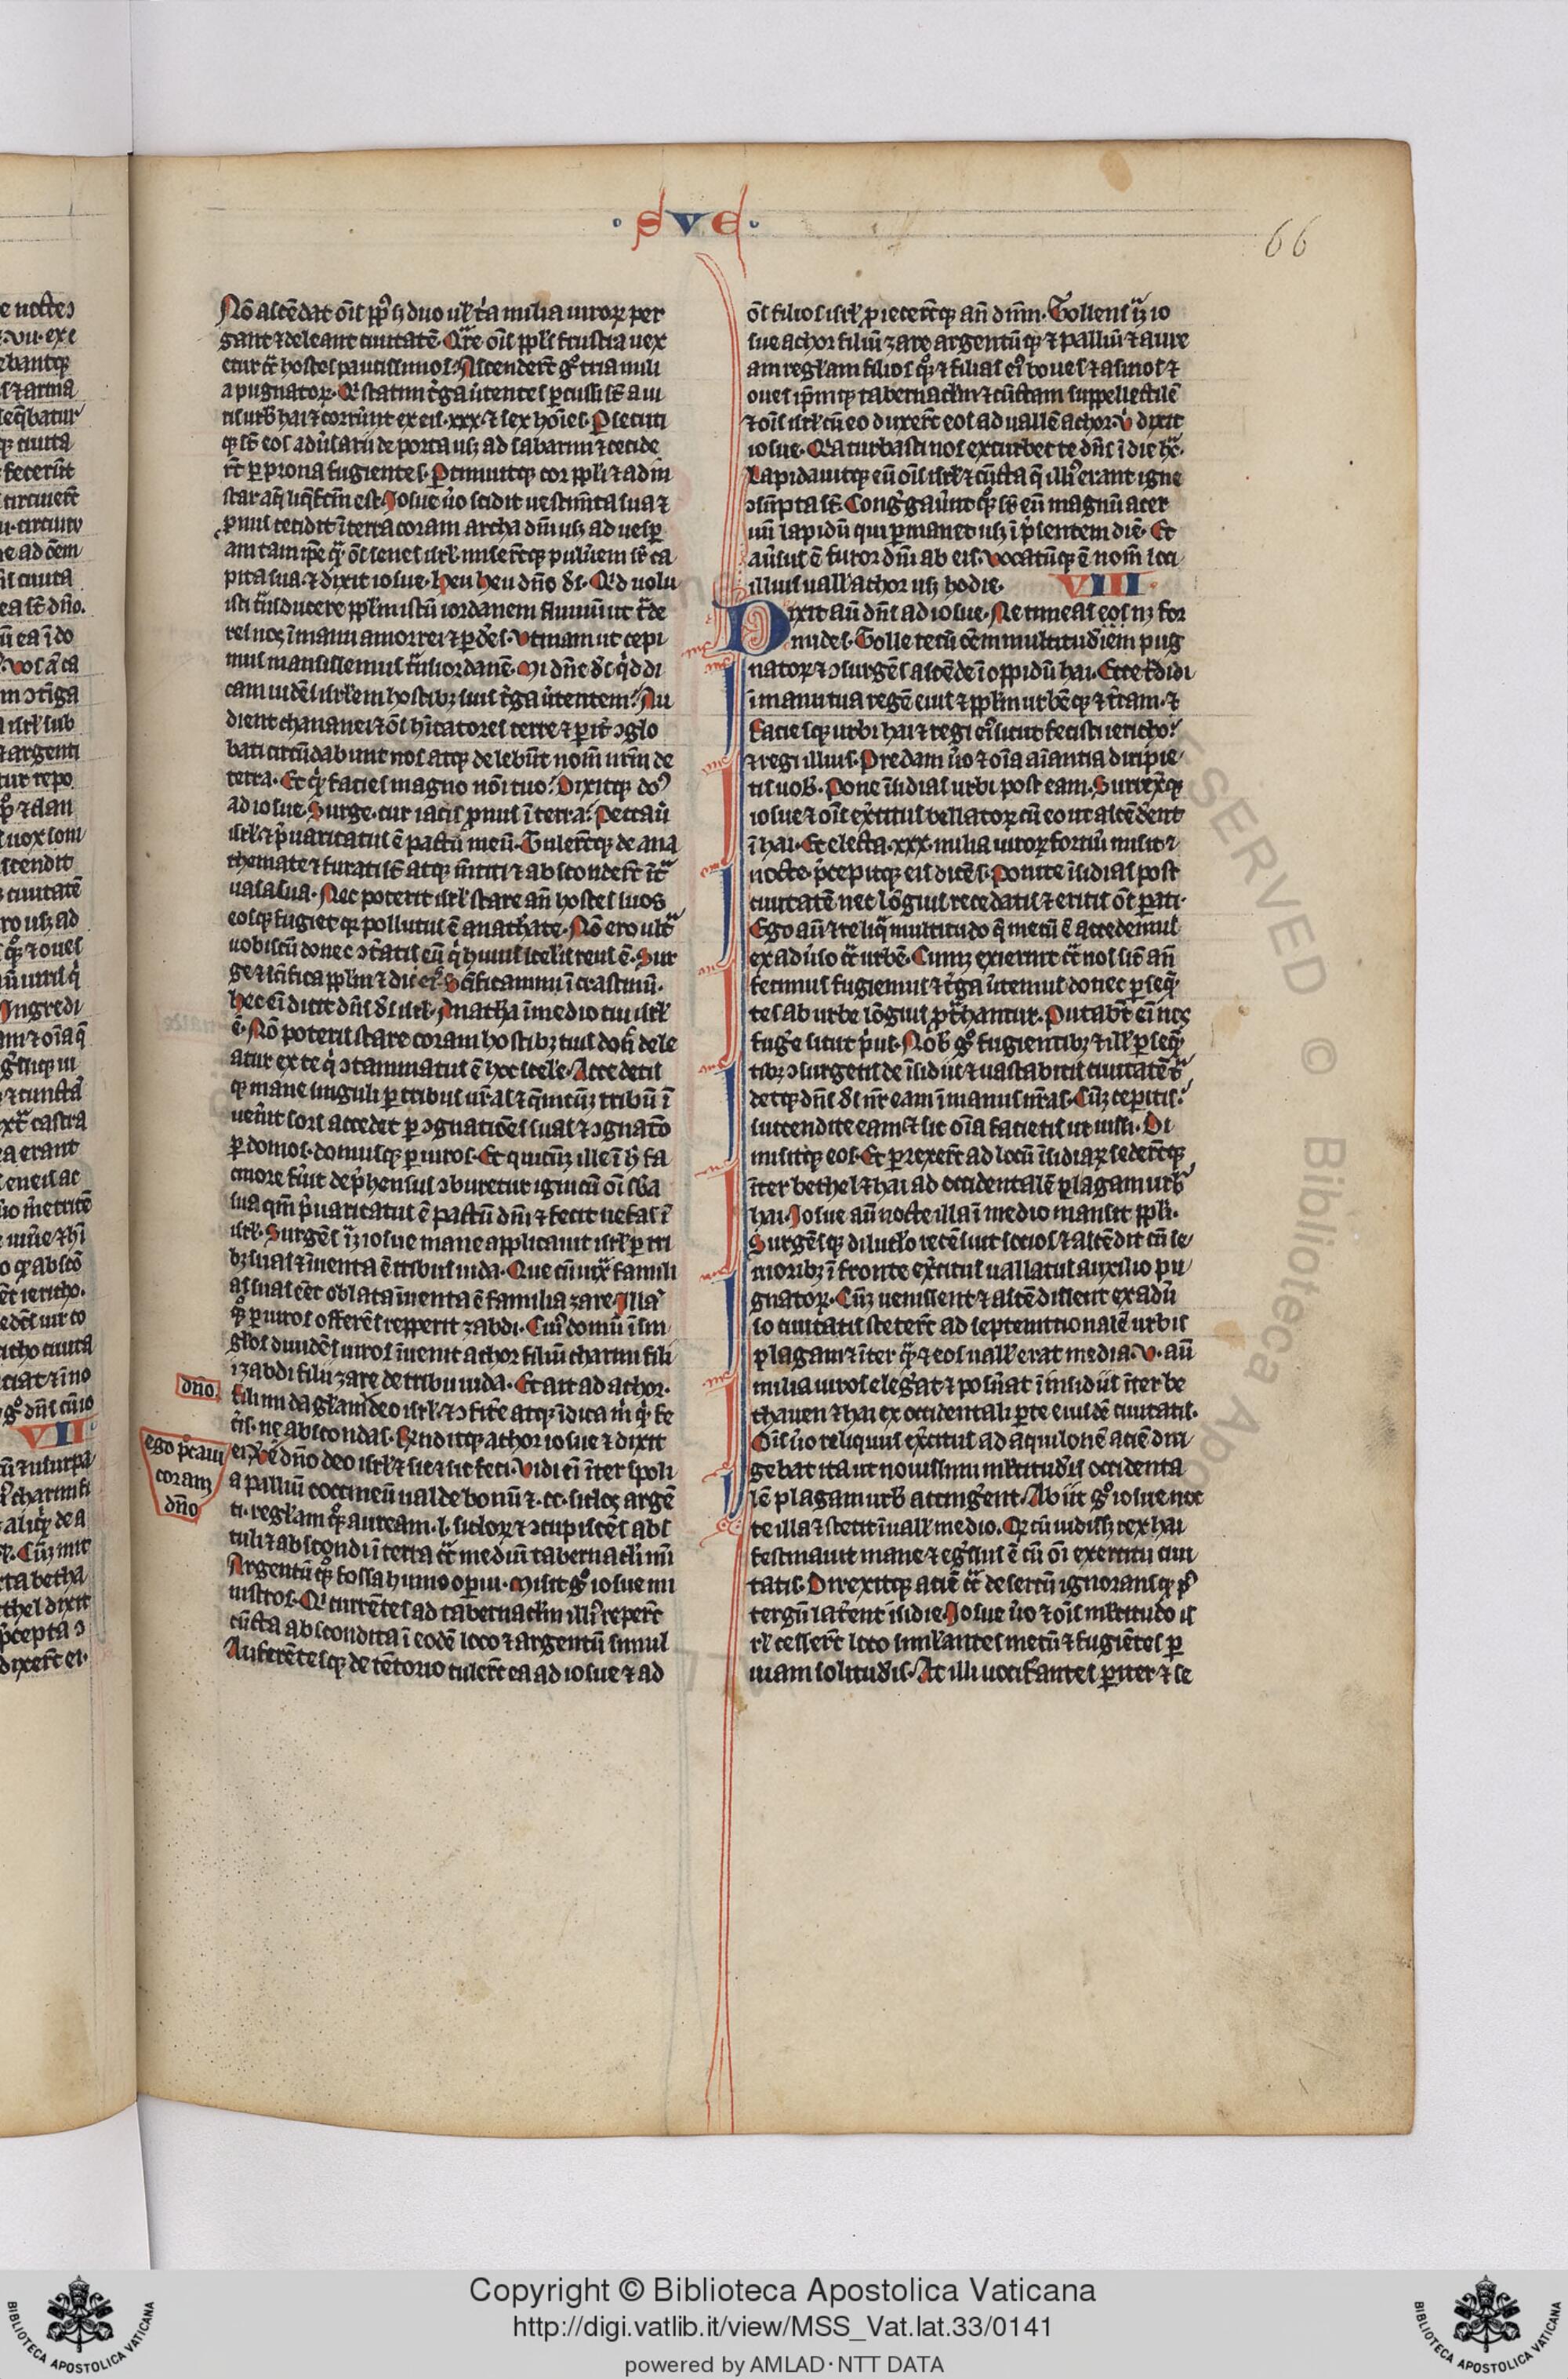 · SVE ·
66
Nō ascēdat oīs ppl's s; duo ul' t'a milia uiroꝝ per
gant ⁊ deleant ciuitatē. Qͣre oīs ppl's frustra uex
etur ct̄ hostes paucissimos. Ascenderūt gͦ tria mili
a pugnatoꝝ. Qͥ statim t'ga ūtentes ꝑcussi st̄ a ui
ris urb' hai ⁊ corrūnt ex eis .xxx. ⁊ sex hoīes. Ꝑsecuti
qꝫ st̄ eos adūsarii de porta usꝫ ad sabarim ⁊ cecide
rt̄ ꝑ prona fugientes. Ptimuitqꝫ cor ppl'i ⁊ ad in
star aq̄ liq̄fctm̄ est. Iosue ūo scidit uestim̄ta sua ⁊
ꝓnus cecidit ī terra coram archa dn̄i usꝫ ad uesꝑ
am tam ip̄e qͣ oēs senes isrl'. miser̄tqꝫ puluēm sr̄ ca
pita sua. ⁊ dixit iosue. heu heu dn̄e ds. Qͥd uolu
isti t̄nsducere ppl'm istū iordanem fluuiū ut t̄de
res nos ī manu amorrei ⁊ ꝑdes. Vtinam ut cepi
mus mansissemus t̄ns iordanē. Mi dn̄e ds qͥd di
cam uidēs isrl'em hostibꝫ suis t'ga ūtentem. Au
dient chananei ⁊ oēs hītatores terre ⁊ parit' ꝯglo
bati circūdabunt nos atqꝫ delebūt nom̄ nr̄m de
terra. Et qͥd facies magno nōi tuo. Dixitqꝫ dn̄s
ad iosue. Surge. cur iaces ꝓnus ī terra. Peccaū
isrl' ⁊ p̄uaricatus ē pactū meū. Tuler̄tqꝫ de ana
themate ⁊ furati st̄ atqꝫ mētiti ⁊ absconder̄t īt̄
uasa sua. Nec poterit isrl' stare an̄ hostes suos
eosqꝫ fugiet qꝫ pollutus ē anathāte. Nō ero ultͣ
uobiscū donec ꝯt̄atis eū qͥ huius sceleris reus ē. Sur
ge ⁊ sc̄ifica ppl'm ⁊ dic eis. Sc̄ificamini ī crastinū.
hec eī dicit dn̄s ds isrl'. Anathā ī medio tui isrl'
ē. Nō poteris stare coram hostibꝫ tuis donc̄ dele
atur ex te qͥ ꝯtaminatus ē hoc scele. Accedetis
qꝫ mane singuli ꝑ tribus ur̄as ⁊ q̄mcūqꝫ tribū ī
uen̄it sors accedet ꝑ ꝯgnatiōes suas ⁊ ꝯgnatō
ꝑ domos. domusqꝫ ꝑ uiros. Et quicūqꝫ ille ī h' fa
cinore fu'it dep̄hensus ꝯburetur igni cū oī sb̄a
sua qm̄ p̄uaricatus ē pactū dn̄i ⁊ fecit nefas ī
isrl'. Surgēs itaqꝫ iosue mane applicauit isrl' ꝑ tri
bꝫ suas ⁊ īuenta ē tribus iuda. Que cū iuxͣ famili
as suas eēt oblata īuenta ē familia zare. Illā
qͦqꝫ ꝑ uiros offerēs repperit zabdi. Cuiͥ domū ī sin
glos diuidēs uiros īuenit achor filiū charmi fili
i zabdi filii zare de tribu iuda. Et ait ad achor.
fili mi da gl'am deo isrl' ⁊ ꝯfite atqꝫ īdica m̄ qͥd fe
c'is. ne abscondas. Rn̄ditqꝫ achor iosue ⁊ dixit
ei. Ve' dn̄o deo isrl' ⁊ sic ⁊ sic feci. Vidi eī īter spoli
a pallium coccineū ualde bonū ⁊ .cc. siclos argē
ti. regl'am qͦqꝫ auream .l. sicloꝝ ⁊ ꝯcupiscēs abs
tuli ⁊ abscondi ī terra ct̄ mediū tabernacl'i mī
Argentū qͦqꝫ fossa humo operui. Misit gͦ iosue mi
nistros. Qͥ currētes ad tabernaclm̄ illiͥ reꝑer̄t
cūcta abscondita ī eodē loco ⁊ argentū simul
Auferētesqꝫ de tētorio tuler̄t ea ad iosue ⁊ ad
dn̄o.
ego pᵉcaui
coram
dn̄o
ōs filios isrl' ꝓiecer̄tqꝫ an̄ dn̄m. Tollens itaqꝫ io
sue achor filiū zare argentūqꝫ ⁊ palliū ⁊ aure
am regl'am filios qͦqꝫ ⁊ filias eiͥ boues ⁊ asinos ⁊
oues ip̄mqꝫ tabernaclm̄ ⁊ cūctam suppellectilē
⁊ oīs isrl' cū eo duxer̄t eos ad uallē achor. V' dixit
iosue. Qͥa turbasti nos exturbet te dn̄s ī die hͣc.
Lapidauitqꝫ eū oīs isrl' ⁊ cūcta q̄ illiͥ erant igne
ꝯsūpta st̄. Cong'gaūntqꝫ sr̄ eū magnū acer
uū lapidū qui ꝑmanet usꝫ ī p̄sentem diē. Et
aūsus ē furor dn̄i ab eis. Vocatūqꝫ ē nom̄ loci
illius uall' achor usꝫ hodie. VIII.
Dixit aū dn̄s ad iosue. Ne timeas eos nꝫ for
mides. Tolle tecū oēm multitudīem pug
natoꝝ ⁊ ꝯsurgēs ascēde ī oppidū hai. Ecce t̄didi
ī manu tua regē eius ⁊ ppl'm urbēqꝫ ⁊ t̄ram. ⁊
faciesqꝫ urbi hai ⁊ regi eiͥ sicut fecisti iericho.
⁊ regi illius. Predam ūo ⁊ oīa aīantia diripie
tis uob'. Pone īsidias urbi post eam. Surrex̄qꝫ
iosue ⁊ oīs ex̄citus bellatoꝝ cū eo ut ascēdent
ī hai. Et electa .xxx. milia uiroꝝ fortiū misit
nocte p̄cepitqꝫ eis dicēs. Ponite īsidias post
ciuitatē nec lōgius recedatis ⁊ eritis oēs ꝑati.
Ego aū ⁊ reliqͣ multitudo q̄ mecū ē accedemus
ex adūso ct̄ urbē. Cumqꝫ exierint ct̄ nos sic̄ an̄
fecimus fugiemus ⁊ t'ga ūtemus donec ꝑseqͣ
tes ab urbe lōgius ꝓt̄hantur. Putabt̄ eī nos
fug'e sicut p̄us. Nob' gͦ fugientibꝫ ⁊ ill' ꝑseqͣ
tibꝫ ꝯsurgetis de īsidiis ⁊ uastabitis ciuitatē. t̄
detqꝫ dn̄s ds nr̄ eam ī manus ur̄as. Cūqꝫ ceperitis.
succendite eam ⁊ sic oīa facietis ut iussi. Di
misitqꝫ eos. Et ꝑrexer̄t ad locū īsidiaꝝ seder̄tqꝫ
īter bethel ⁊ hai ad occidentalē plagam urb'
hai. Iosue aū nocte illa ī medio mansit ppl'i.
Surgēsqꝫ dilucl'o recēsuit socios ⁊ ascēdit cū se
nioribꝫ ī fronte ex̄citus uallatus auxilio pu
gnatoꝝ. Cūqꝫ uenissent ⁊ ascēdissent ex adū
so ciuitatis steter̄t ad septemtrionalē urbis
plagam ⁊ īter qͣm ⁊ eos uall' erat media. V. aū
milia uiros eleg'at ⁊ posūat ī insidiis īter be
thauen ⁊ hai ex occidentali ꝑte eiusdē ciuitatis.
Oīs ūo reliquus ex̄citus ad aquilonē aciē diri
gebat ita ut nouissimi m̄ltitudīs occidenta
lē plagam urb' attinge'ent. Abiit gͦ iosue noc
te illa ⁊ stetit ī uall' medio. Qͦ cū uidissꝫ rex hai
festinauit mane ⁊ eg'ssus ē cū oī exercitu ciui
tatis. Direxitqꝫ aciē ct̄ desertū ignoransqꝫ pͦ
tergū lat'ent īsidie. Iosue ūo ⁊ oīs m̄ltitudo is
rl' cesser̄t loco simul'antes metū ⁊ fugiētes ꝑ
uiam solitudīs. At illi uocifantes ꝑiter ⁊ se
VII
Copyright © Biblioteca Apostolica Vaticana
http://digi.vatlib.it/view/MSS_Vat.lat.33/0141
powered by AMLAD · NTT DATA